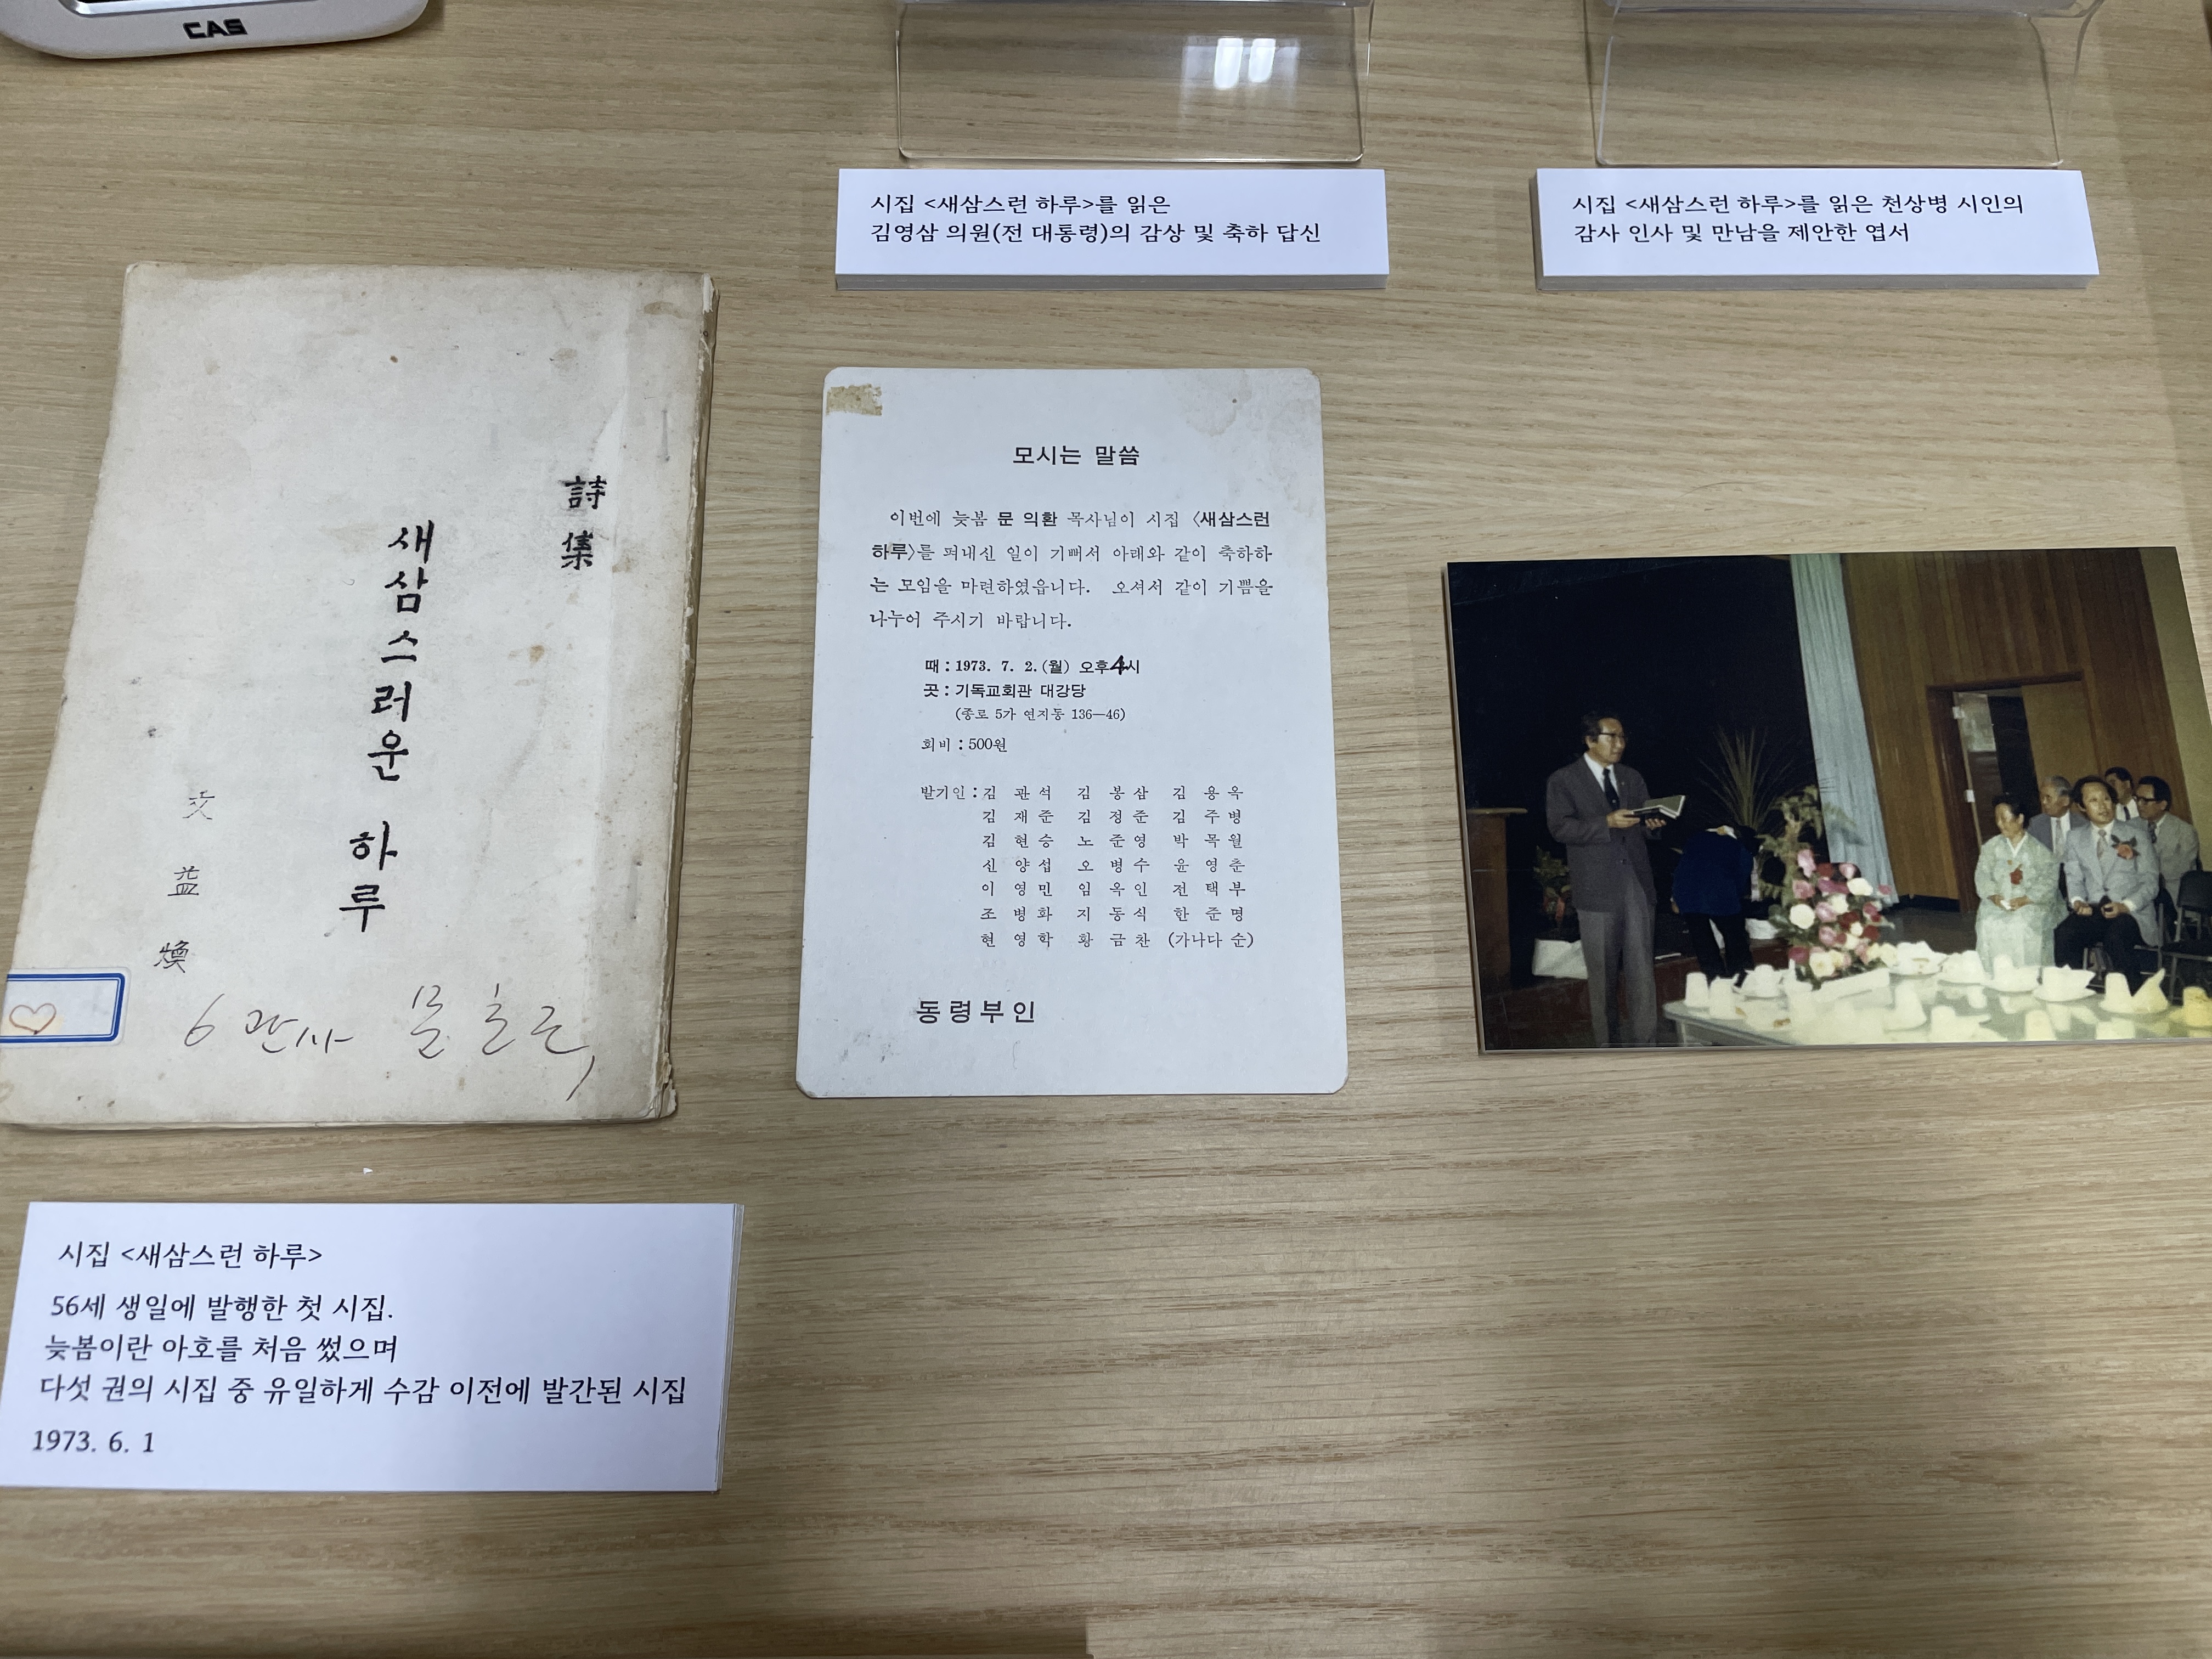 CAS
시집 <새삼스런 하루>를 읽은
김영삼 의원(전 대통령)의 감상 및 축하 답신
시집 <새삼스런 하루>를 읽은 천상병 시인의
감사 인사 및 만남을 제안한 엽서
詩集
새삼스러운 하루
文益煥
6 관사 문호근
모시는 말씀
이번에 늦봄 문 익환 목사님이 시집 〈새삼스런
하루〉를 펴내신 일이 기뻐서 아래와 같이 축하하
는 모임을 마련하였읍니다. 오셔서 같이 기쁨을
나누어 주시기 바랍니다.
때 : 1973. 7. 2. (월) 오후 4시
곳 : 기독교회관 대강당
(종로 5가 연지동 136—46)
회비 : 500원
발기인 : 김관석 김봉삼 김용옥
김재준 김정준 김주병
김현승 노준영 박목월
신양섭 오병수 윤영춘
이영민 임옥인 전택부
조병화 지동식 한준명
현영학 황금찬 (가나다 순)
동령부인
시집 <새삼스런 하루>
56세 생일에 발행한 첫 시집.
늦봄이란 아호를 처음 썼으며
다섯 권의 시집 중 유일하게 수감 이전에 발간된 시집
1973. 6. 1